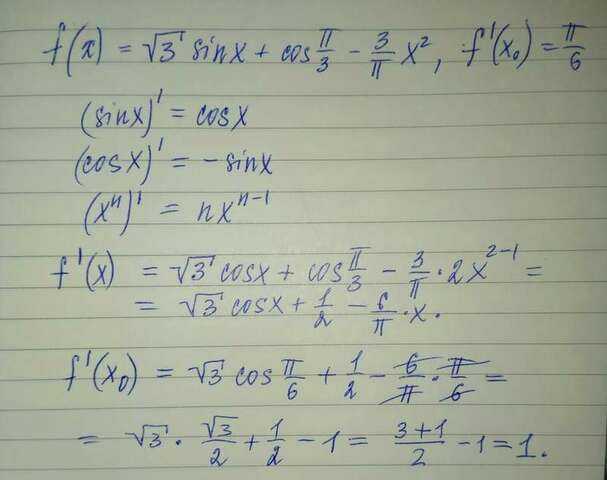 f(x) = √3 sinx + cos π/3 − 3/π x², f'(x₀) = π/6
(sinx)' = cosx
(cosx)' = −sinx
(xⁿ)' = nxⁿ⁻¹
f'(x) = √3 cosx + cos π/3 − 3/π · 2x²⁻¹ =
= √3 cosx + 1/2 − 6/π · x.
f'(x₀) = √3 cos π/6 + 1/2 − 6/π · π/6 =
= √3 · √3/2 + 1/2 − 1 = (3+1)/2 − 1 = 1.